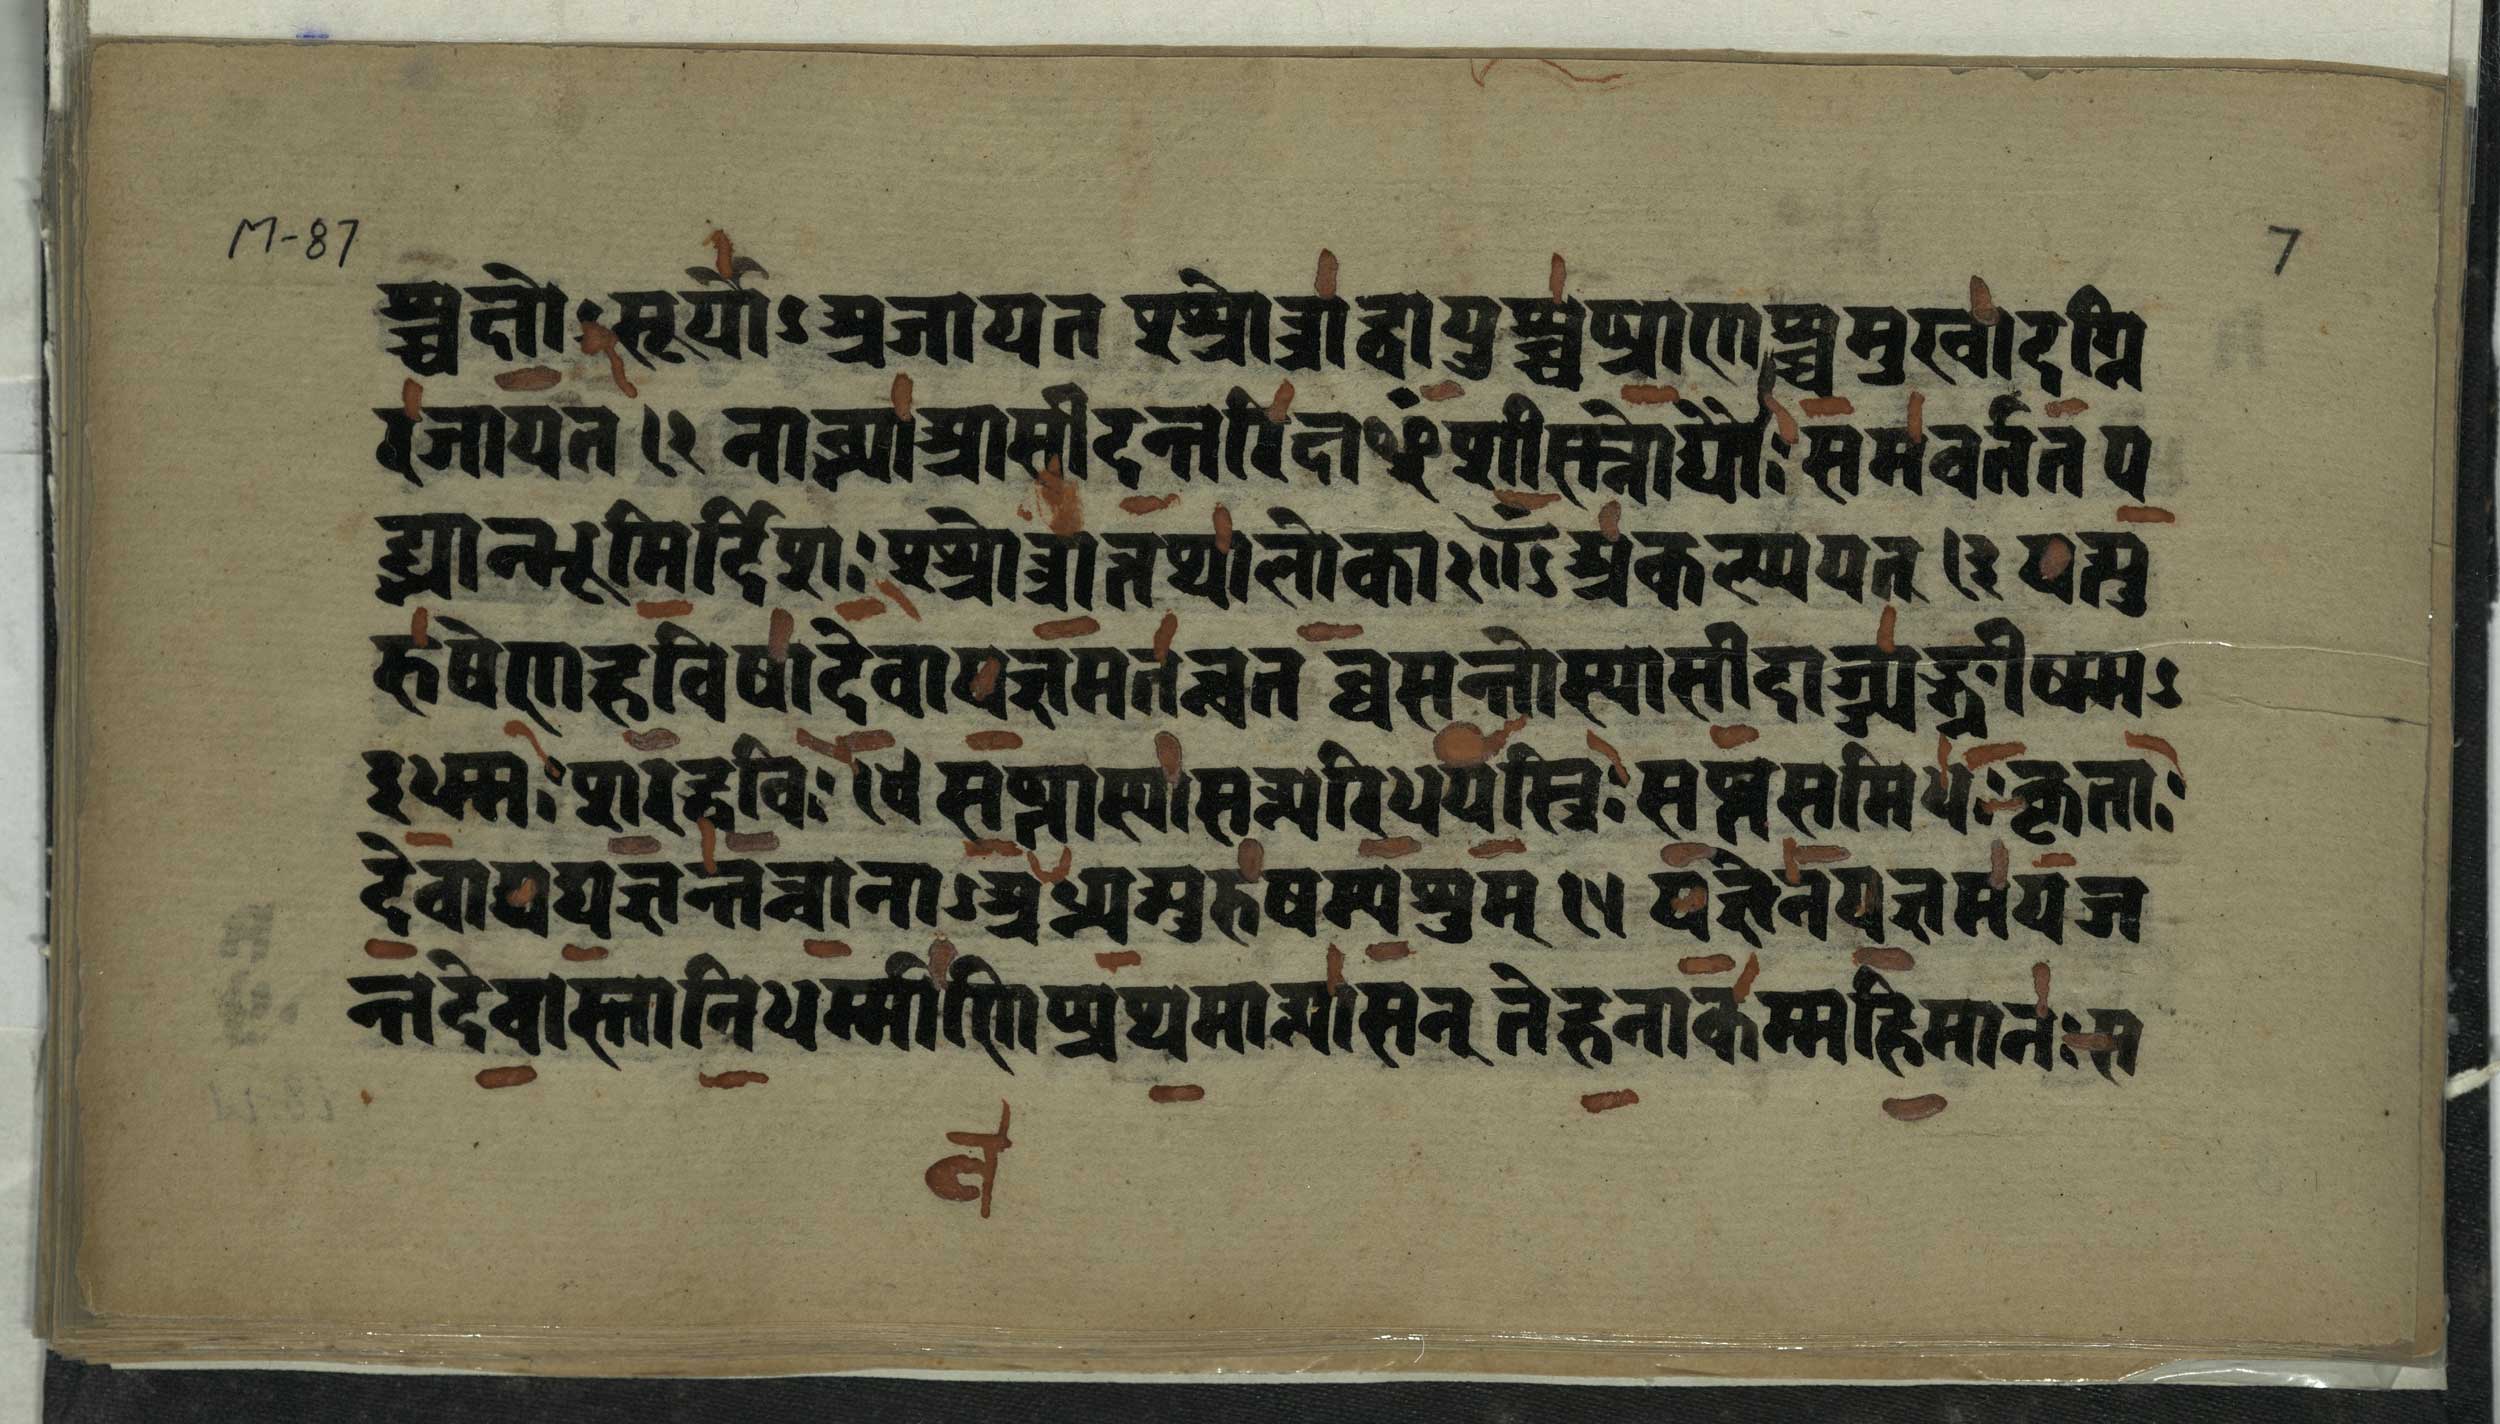 M-87
7
श्चक्षोःसूर्योऽअजायत श्श्रोत्राद्वायुश्चप्राणश्चमुखादग्नि
रजायत १२ नाब्भ्याआसीदन्तरिक्षᳪशीर्ष्णोद्यौःसमवर्त्ततप
द्भ्याम्भूमिर्दिशःश्श्रोत्रात्तथालोकाँ२ऽअकल्प्पयन् १३ यत्पु
रुषेणहविषादेवायज्ञमतन्न्वत व्वसन्तोस्यासीदाज्ज्यङ्ग्रीष्म्मऽ
इध्म्मःशरद्धविः १४ सप्प्तास्यासन्न्परिधयस्त्रिःसप्प्तसमिधःकृताः
देवायद्यज्ञन्तन्न्वानाऽअबध्नन्पुरुषम्पशुम् १५ यज्ञेनयज्ञमयज
न्तदेवास्तानिधर्म्माणिप्प्रथमान्न्यासन् तेहनाकम्महिमानःस